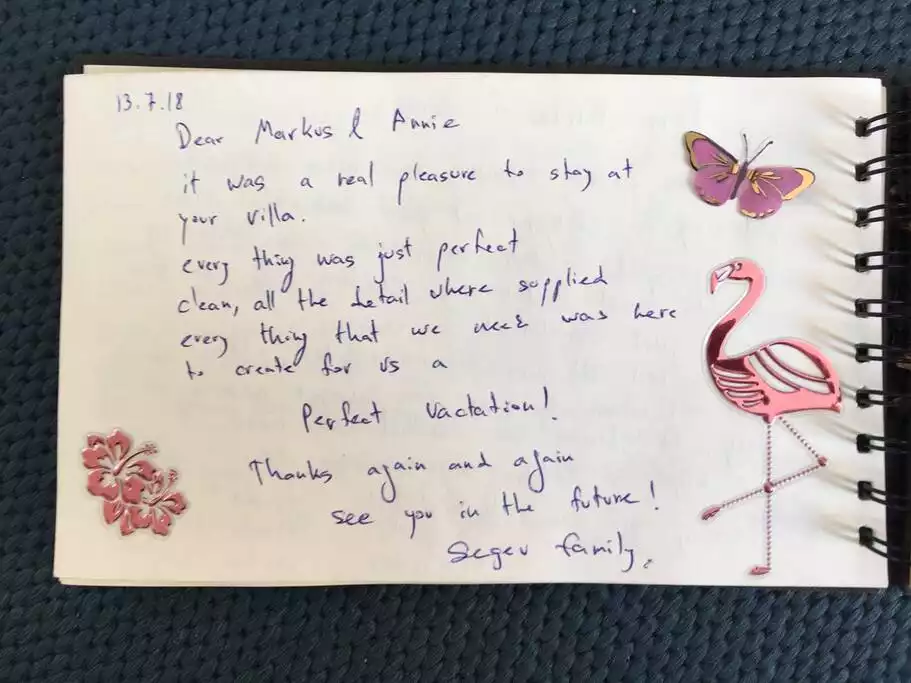 13.7.18
Dear Markus & Annie
it was a real pleasure to stay at
your villa.
every thing was just perfect
clean, all the detail where supplied
every thing that we need was here
to create for us a
Perfect vactation!
Thanks again and again
see you in the future!
Segev family.